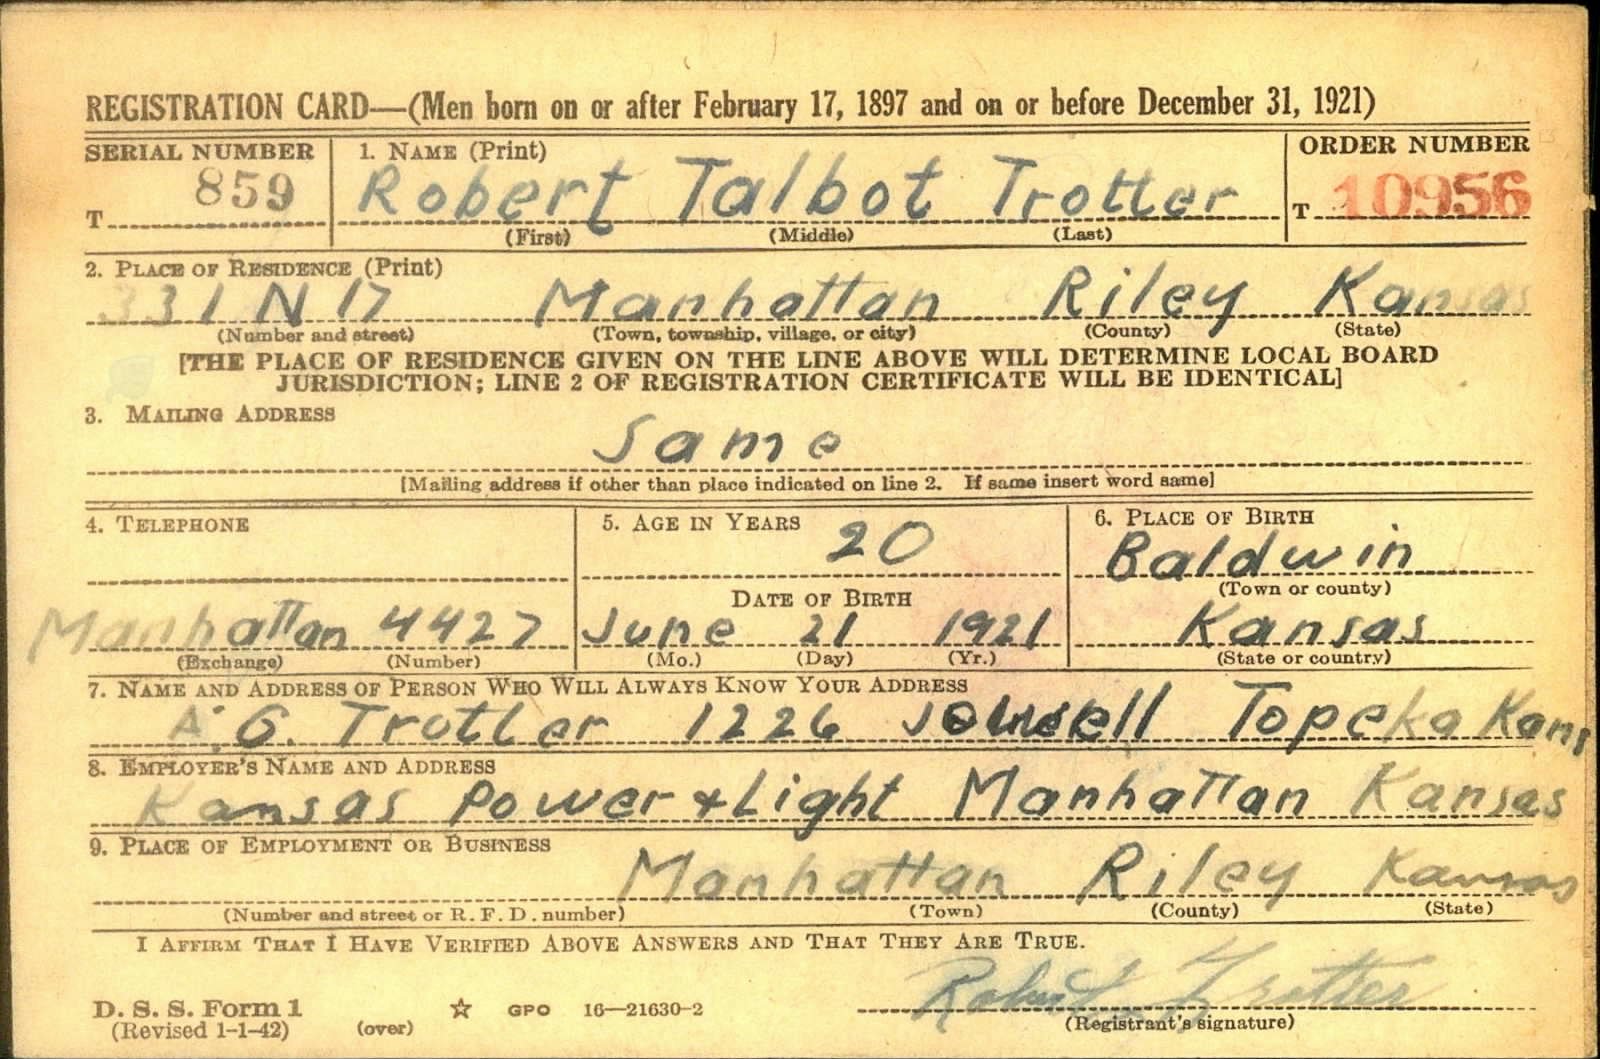 REGISTRATION CARD—(Men born on or after February 17, 1897 and on or before December 31, 1921)
SERIAL NUMBER 1. NAME (Print) ORDER NUMBER
T 859 Robert Talbot Trotter T 10956
(First) (Middle) (Last)
2. PLACE OF RESIDENCE (Print)
331 N 17 Manhattan Riley Kansas
(Number and street) (Town, township, village, or city) (County) (State)
[THE PLACE OF RESIDENCE GIVEN ON THE LINE ABOVE WILL DETERMINE LOCAL BOARD
JURISDICTION; LINE 2 OF REGISTRATION CERTIFICATE WILL BE IDENTICAL]
3. MAILING ADDRESS
Same
[Mailing address if other than place indicated on line 2. If same insert word same]
4. TELEPHONE 5. AGE IN YEARS 6. PLACE OF BIRTH
20 Baldwin
(Town or county)
DATE OF BIRTH
Manhattan 4427 June 21 1921 Kansas
(Exchange) (Number) (Mo.) (Day) (Yr.) (State or country)
7. NAME AND ADDRESS OF PERSON WHO WILL ALWAYS KNOW YOUR ADDRESS
A. G. Trotter 1226 Topeka Kans
8. EMPLOYER'S NAME AND ADDRESS
Kansas Power + Light Manhattan Kansas
9. PLACE OF EMPLOYMENT OR BUSINESS
Manhattan Riley Kansas
(Number and street or R. F. D. number) (Town) (County) (State)
I AFFIRM THAT I HAVE VERIFIED ABOVE ANSWERS AND THAT THEY ARE TRUE.
Robert T Trotter
D. S. S. Form 1 ☆ GPO 16—21630-2
(Revised 1-1-42) (over) (Registrant's signature)